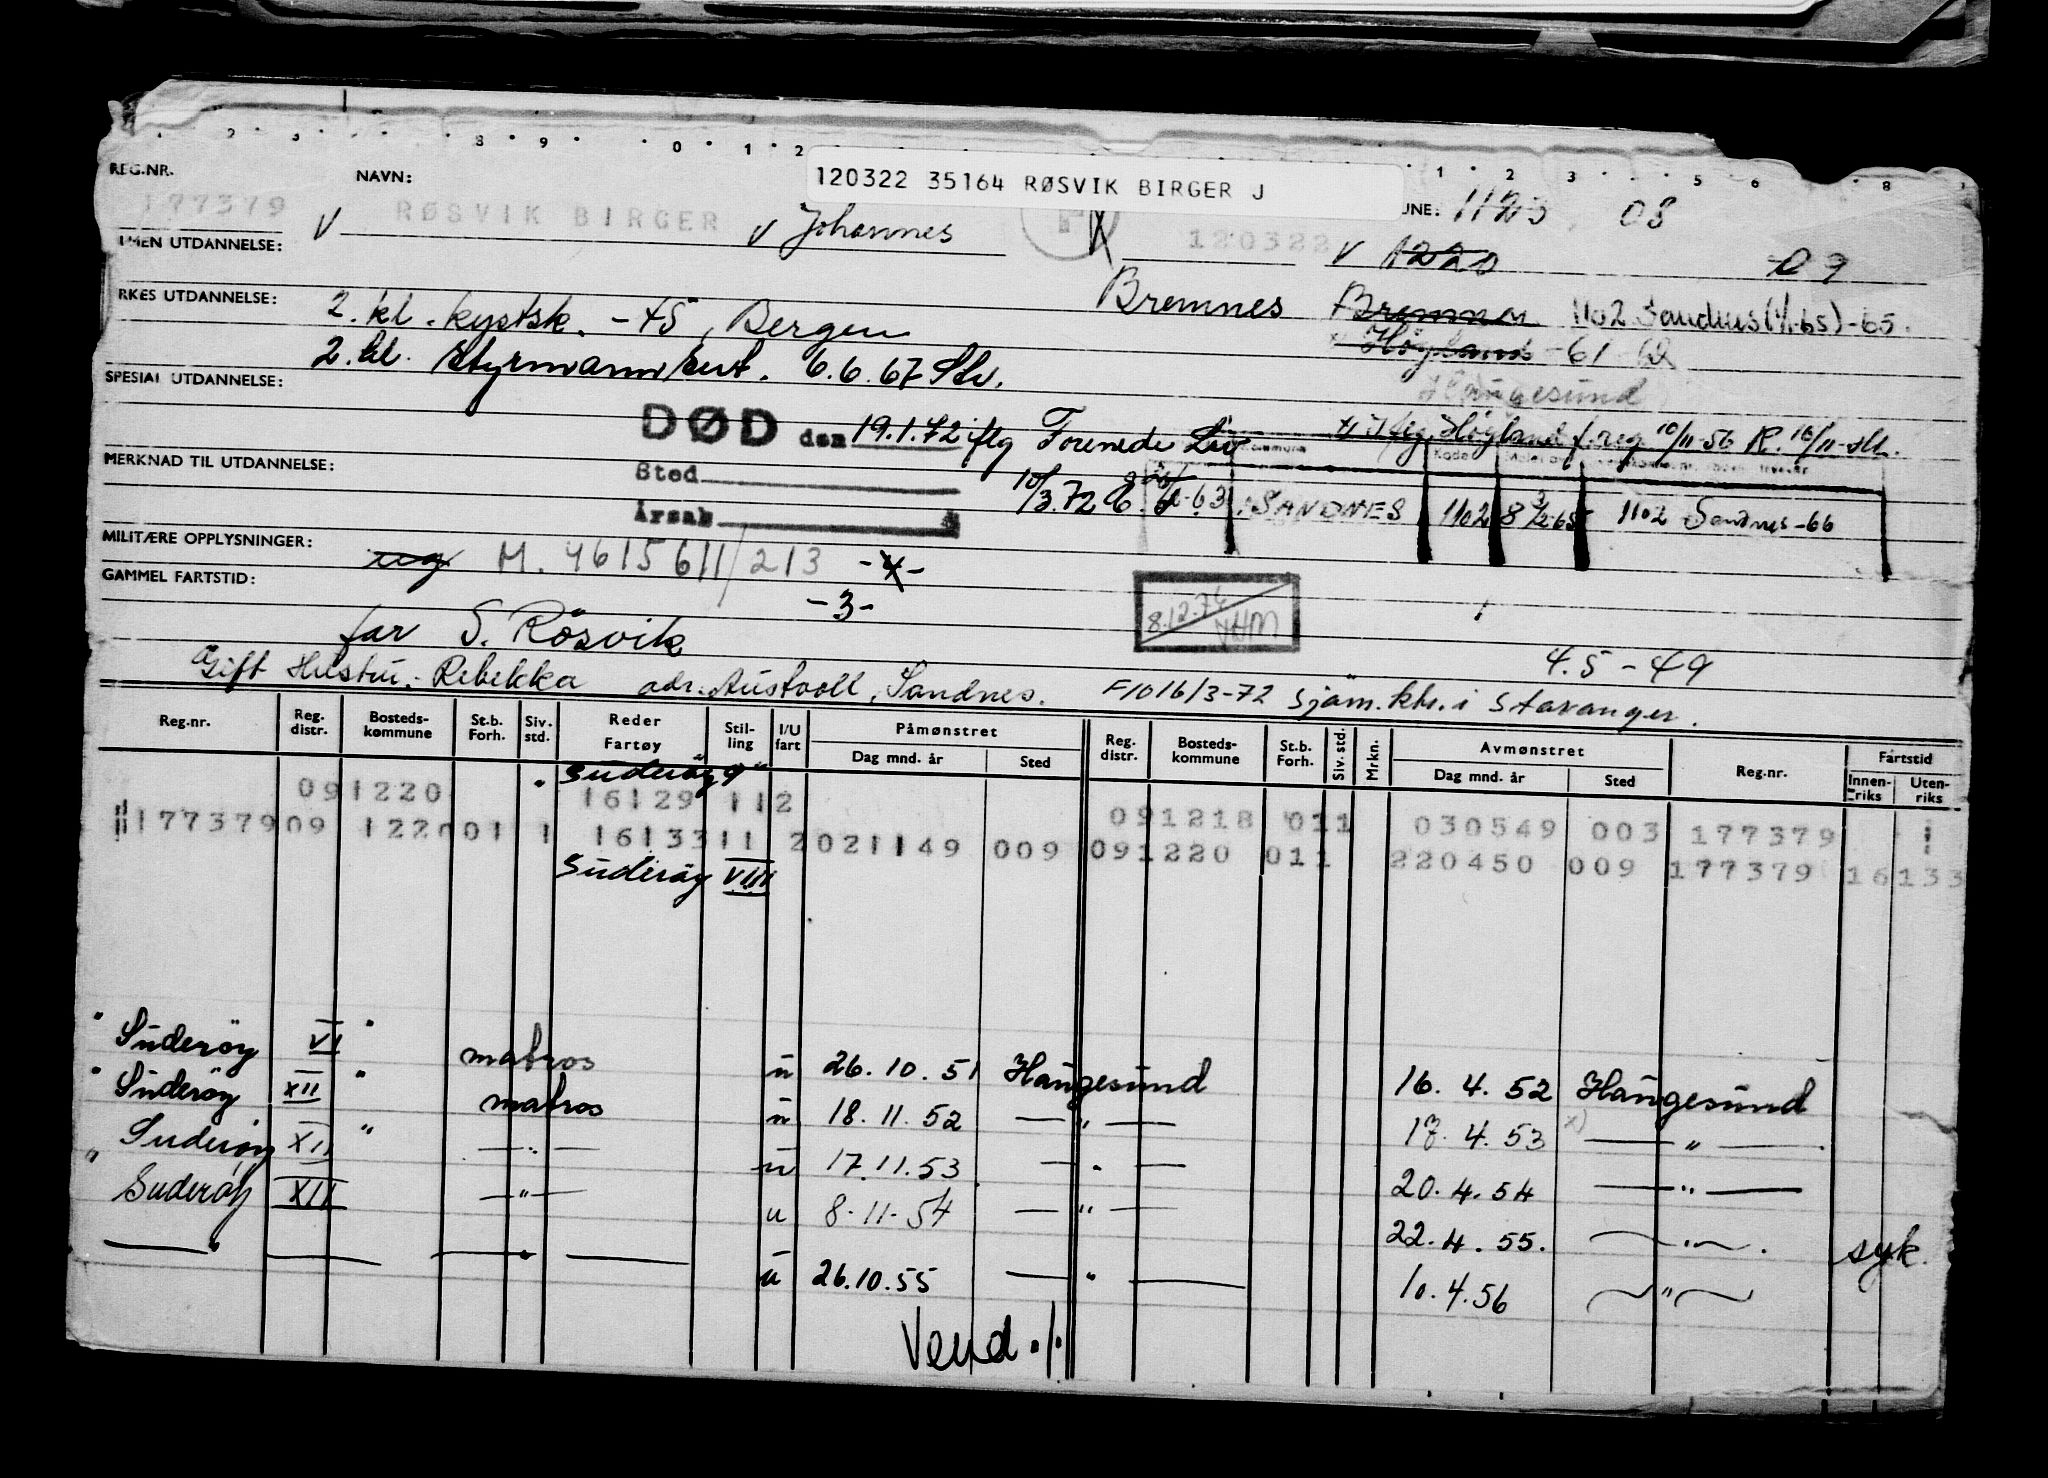 120322 35164 RØSVIK BIRGER J
REG.NR. NAVN: UNE: 1123, 08
177379 V RØSVIK BIRGER V Johannes 120322 V 1220 09
LMEN UTDANNELSE:
RKES UTDANNELSE: 2. kl. kystsk. -45, Bergen Bremnes 1102 Sandnes (1/1-65) -65.
2. kl. styrmannsert. 6.6.67 Stv. Høyland -61
SPESIAL UTDANNELSE: Haugesund
DØD den 19.1.72 iflg Forenede Liv Høyland f. reg 10/11-56 R. 16/11
MERKNAD TIL UTDANNELSE:
Sted 10/3.72 SANDNES 1102 8 1102 Sandnes-66
Årsak
MILITÆRE OPPLYSNINGER: M. 4615611/213 -4-
GAMMEL FARTSTID: -3-
8.12.76
far S. Rösvik 4.5-49
Gift Hustru:- Rebekka adr. Austvoll, Sandnes. F1016/3-72 Sjøm.ktr. i Stavanger.
Reg.nr. Reg. distr. Bosteds- kommune St.b. Forh. Siv. std. Reder Fartøy Stil- ling I/U fart Påmønstret Dag mnd. år Sted Reg. distr. Bosteds- kommune St.b. Forh. Siv. std. Mrkn. Avmønstret Dag mnd. år Sted Reg.nr. Fartstid Innen- riks Uten- riks
" Suderøy 9"
091220 16129 112 091218 011 030549 003 177379 1
177379 09 122001 1 1613311 2021149 009 091220 011 220450 009 177379 16133
Suderøy VIII
" Suderøy VI " matros u 26.10.51 Haugesund 16.4.52 Haugesund
" Suderøy XII " matros u 18.11.52 — " — 17.4.53 x) — " —
Suderøy XII " — " — u 17.11.53 — " — 20.4.54 — " —
" Suderøy XII — " — u 8-11-54 — " — 22.4.55. — " — . syk.
— " — — " — u 26.10.55 — " — 10.4.56 — " —
Vend ./.